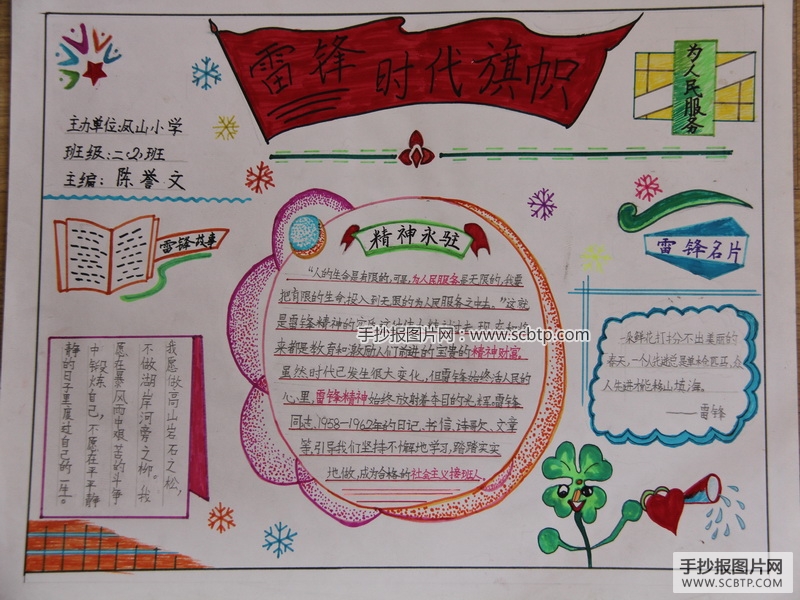 雷锋 时代旗帜
为人民服务
主办单位:凤山小学
班级:二(2)班
主编: 陈誉文
雷锋故事
精神永驻
雷锋名片
“人的生命是有限的,可是,为人民服务是无限的,我要
把有限的生命,投入到无限的为人民服务之中去。”这就
是雷锋精神的
手抄报图片网:www.scbtp.com
来都是教育和激励人们前进的宝贵的精神财富,
虽然时代已发生很大变化,但雷锋始终活人民的
心里,雷锋精神始终放射着夺目的光辉,雷锋
同志,1958—1962年的日记、书信、诗歌、文章
等,引导我们坚持不懈地学习,踏踏实实
地做,成为合格的社会主义接班人。
我愿做高山岩石之松,
不做湖岸河旁之柳。我
愿在暴风雨中艰苦的斗争
中锻炼自己,不愿在平平静
静的日子里度过自己的一生。
一朵鲜花打扮不出美丽的
春天,一个人先进总是单
人先进才能移山填海。
——雷锋
手抄报图片网
WWW.SCBTP.COM